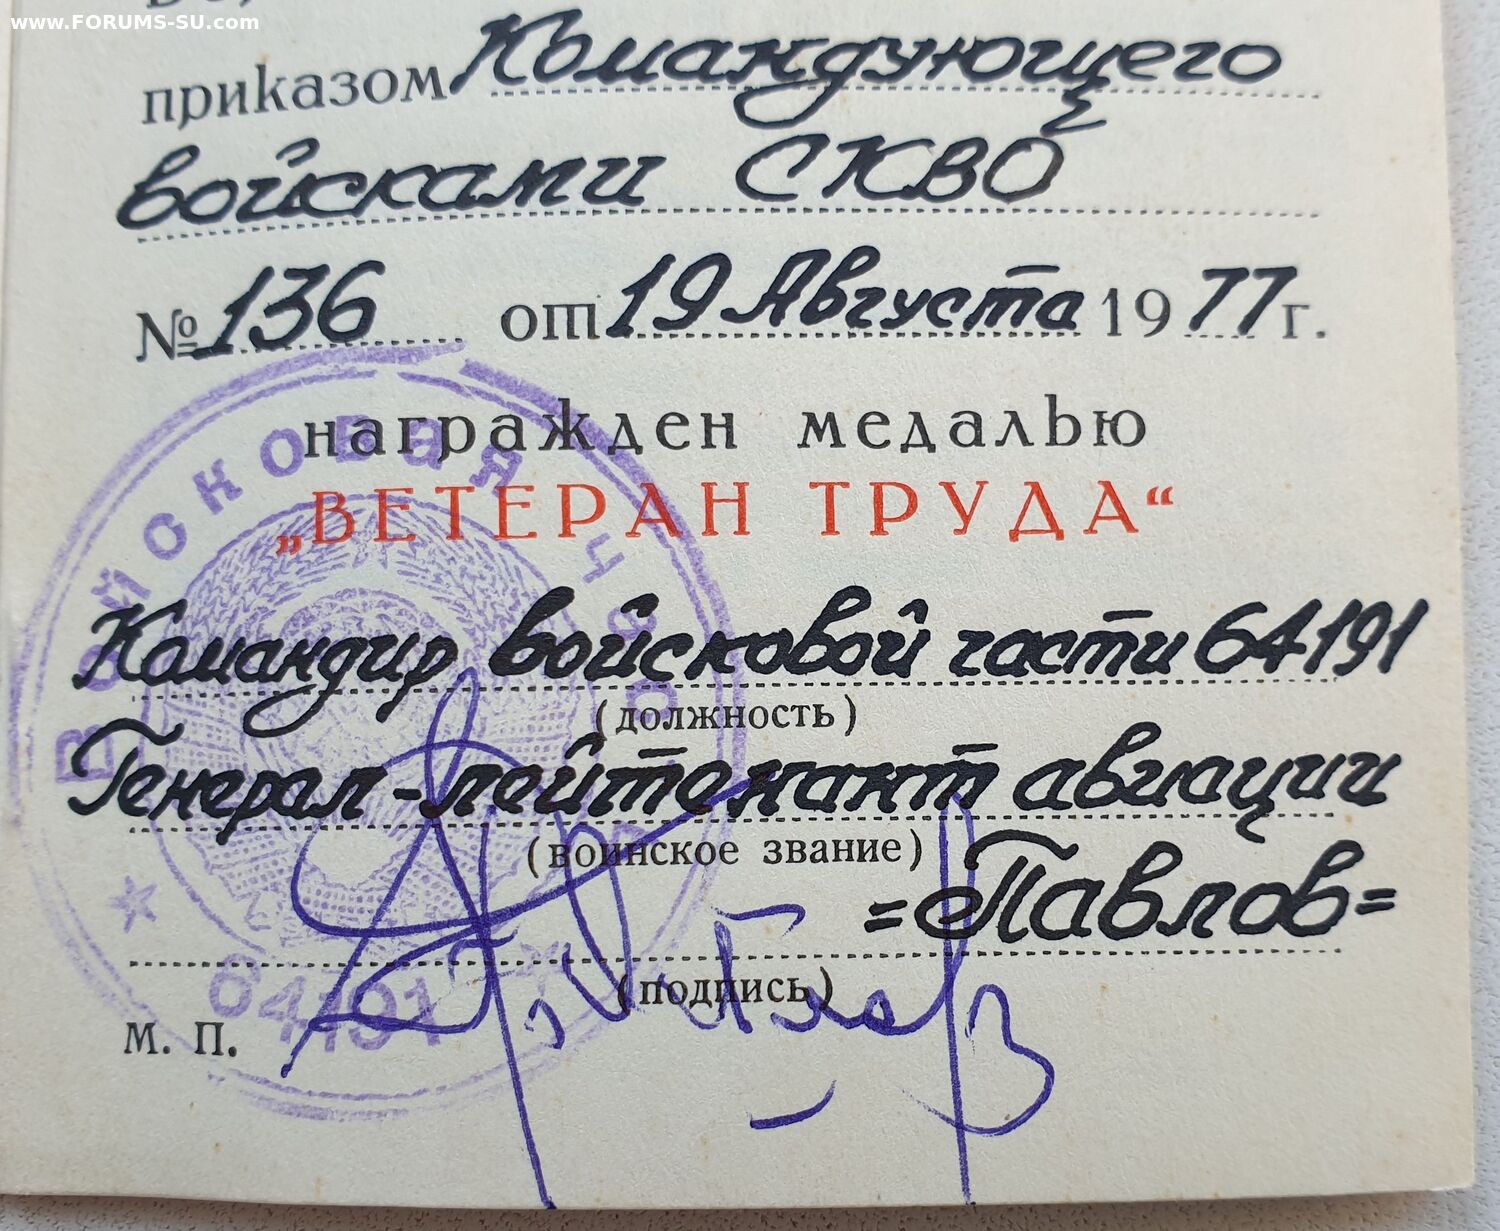 www.FORUMS-SU.com
приказом Командующего
войсками СКВО
№ 136 от 19 Августа 1977 г.
награжден медалью
„ВЕТЕРАН ТРУДА“
Командир войсковой части 64191
(должность)
Генерал-лейтенант авиации
(воинское звание)
=Павлов=
(подпись)
М. П.
Войсковая часть
64191